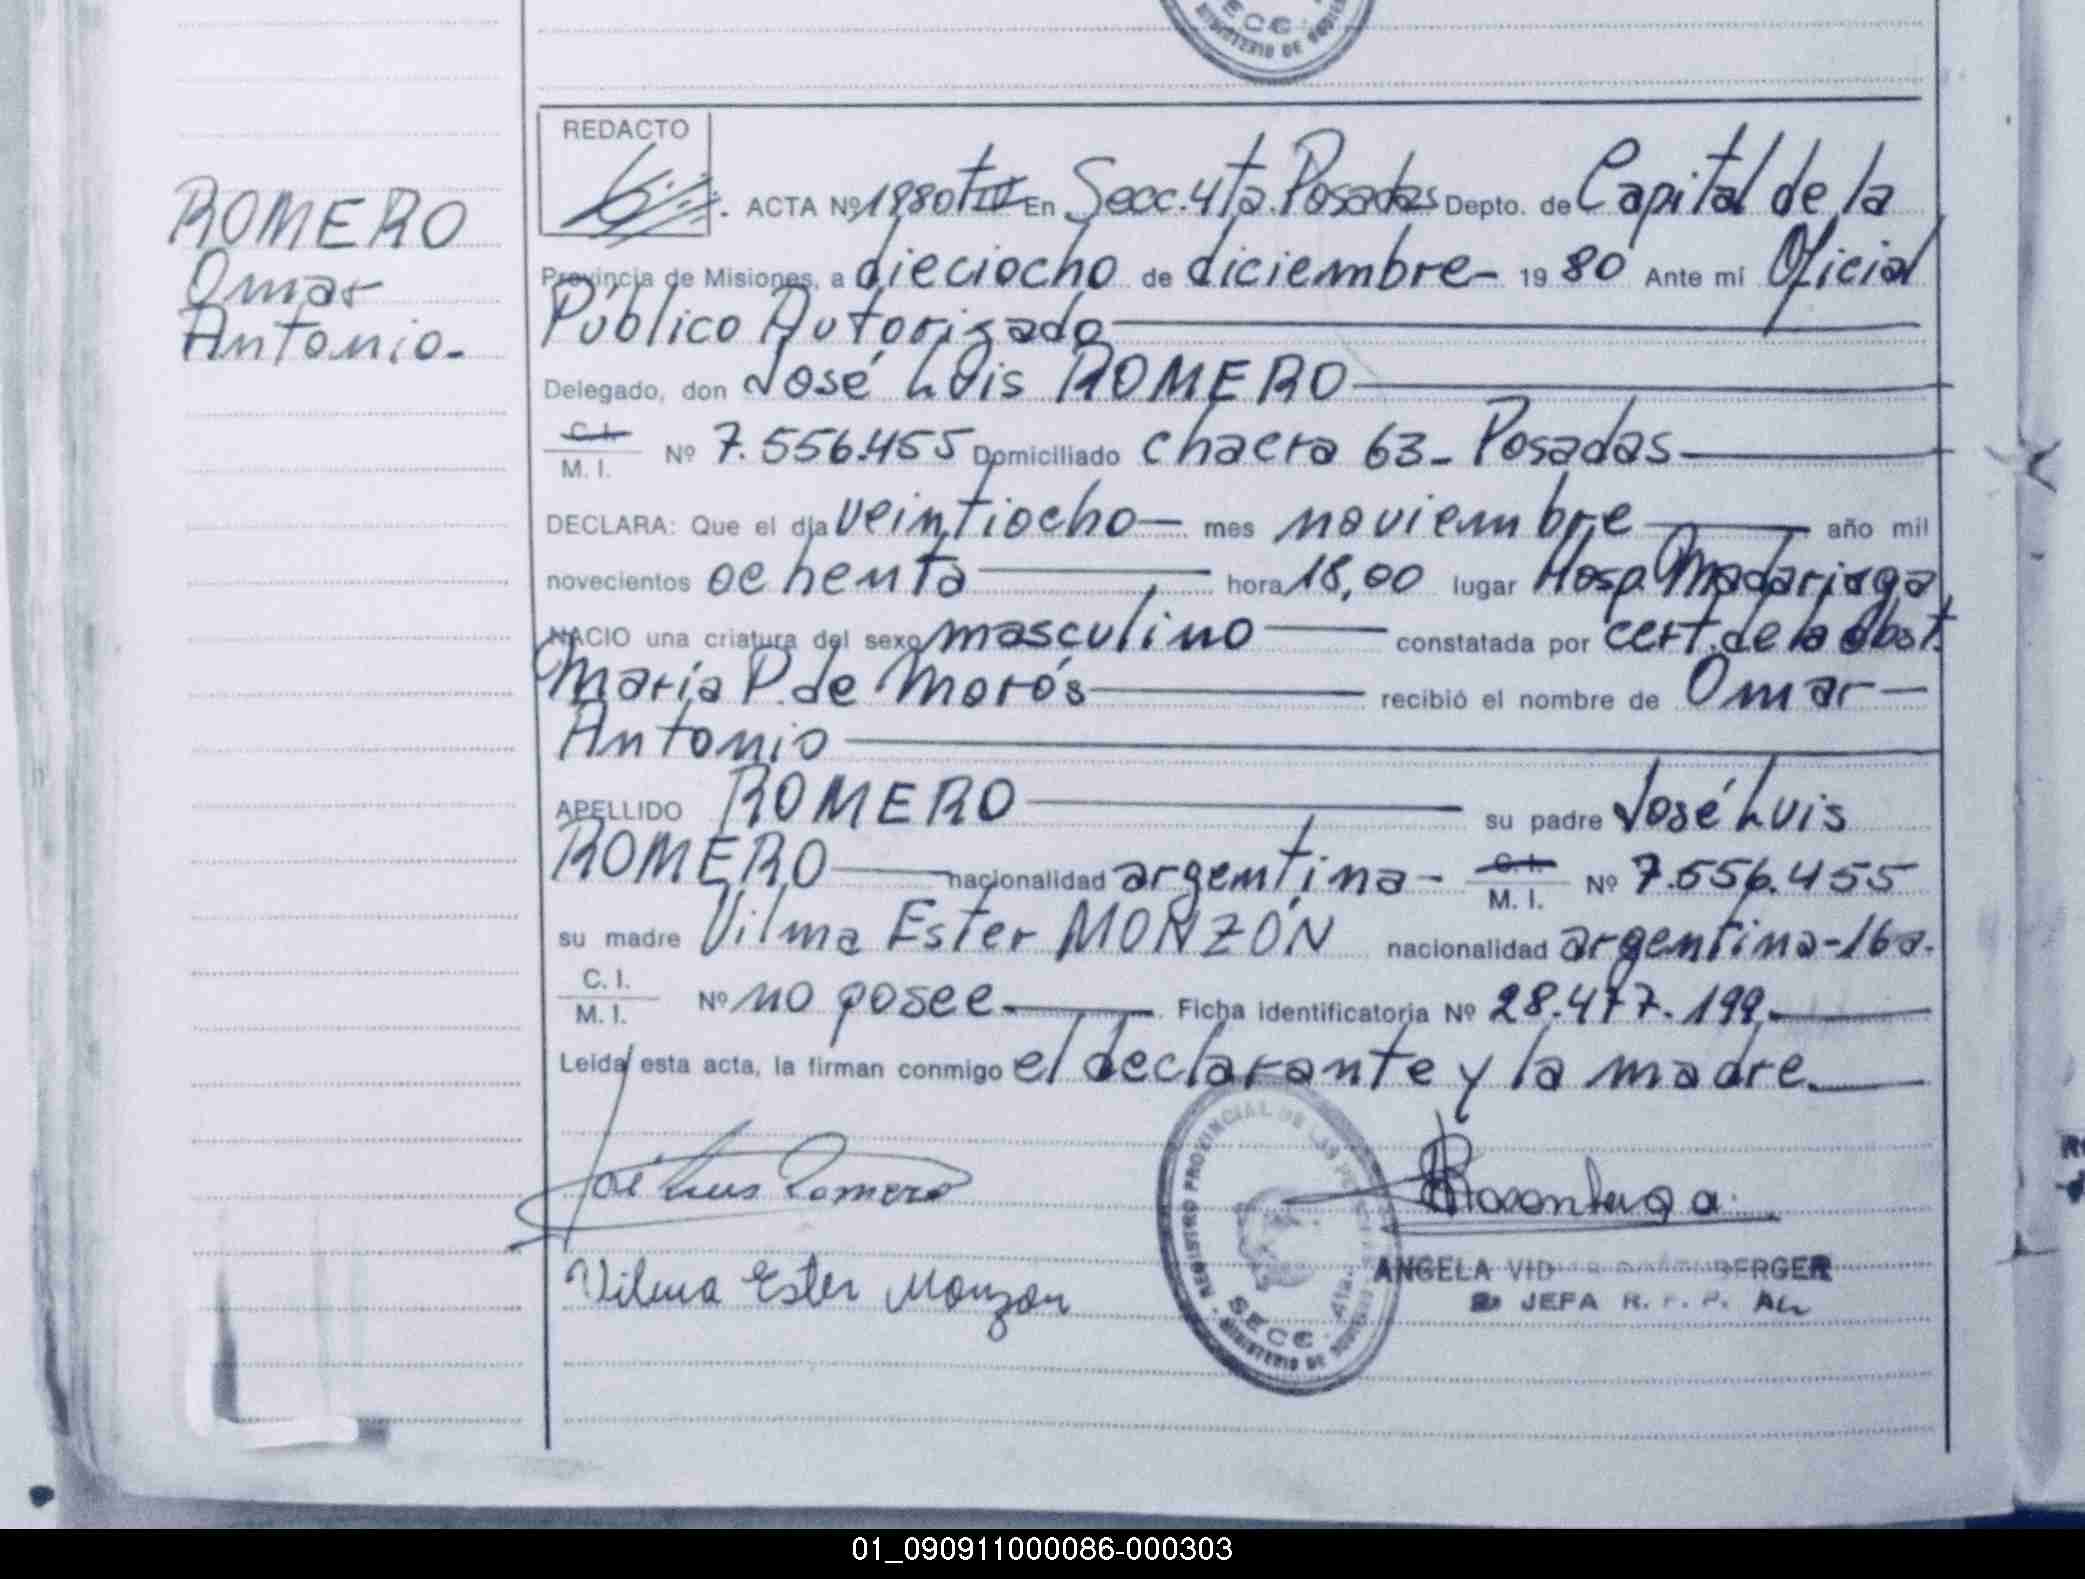 REDACTO
ROMERO
Omar
Antonio.-
ACTA Nº 1880 tº III En Secc. 4ta. Posadas Depto. de Capital de la
Provincia de Misiones, a dieciocho de diciembre - 19 80 Ante mí Oficial
Público Autorizado
Delegado, don José Luis ROMERO
C. I.
M. I. Nº 7.556.455 Domiciliado chacra 63- Posadas
DECLARA: Que el día veintiocho - mes noviembre año mil
novecientos ochenta hora 18,00 lugar Hosp. Madariaga
NACIO una criatura del sexo masculino constatada por cert. de la obst.
María P. de Morós recibió el nombre de Omar -
Antonio
APELLIDO ROMERO su padre José Luis
ROMERO nacionalidad argentina - C. I.
M. I. Nº 7.556.455
su madre Vilma Ester MONZÓN nacionalidad argentina-16a.
C. I.
M. I. Nº no posee. Ficha identificatoria Nº 28.477.199.
Leida esta acta, la firman conmigo el declarante y la madre.
José Luis Romero
Vilma Ester Monzon
REGISTRO PROVINCIAL DE LAS PERSONAS
SECC. 4ta.
MINISTERIO DE GOBIERNO
ANGELA
JEFA R. P. P.
SECC.
MINISTERIO DE GOBIERNO
01_090911000086-000303